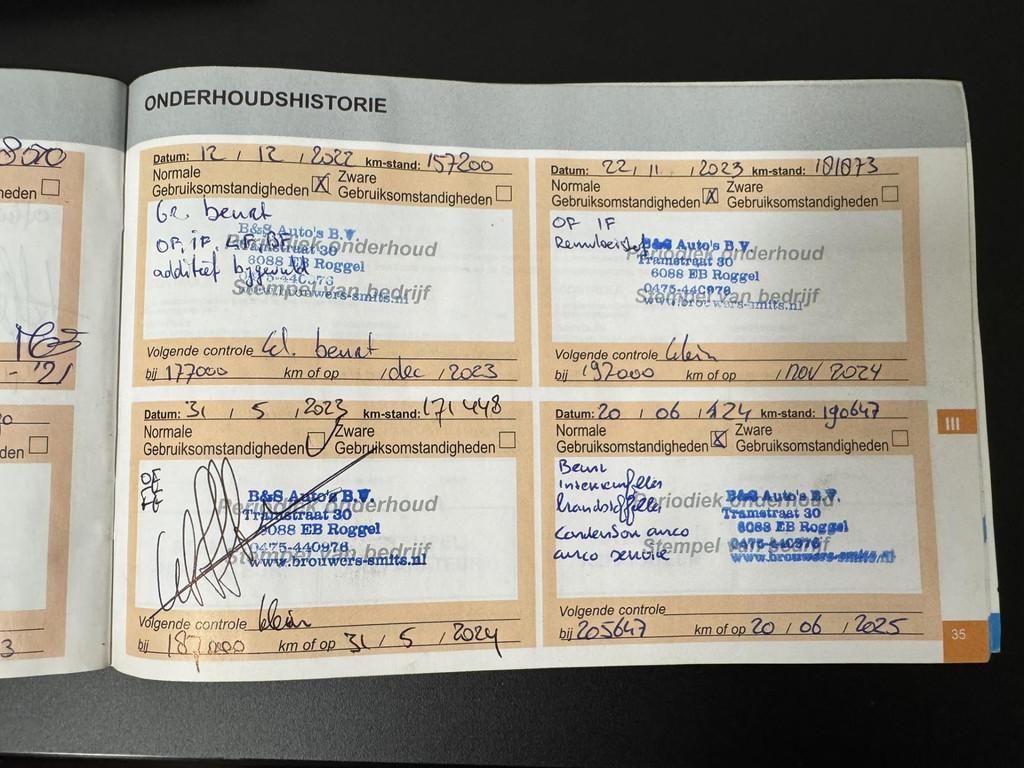 8500
heden
'21
den
3
ONDERHOUDSHISTORIE
Datum: 12 / 12 / 2022 km-stand: 157200
Normale Zware
Gebruiksomstandigheden X Gebruiksomstandigheden
Gr. beurt
OF, IF, LF, BF
additief bijgevuld
B&S Auto's B.V.
Tramstraat 30
6088 EB Roggel
0475-440976
www.brouwers-smits.nl
Periodiek onderhoud
Stempel van bedrijf
Volgende controle kl. beurt
bij 177000 km of op / dec / 2023
Datum: 31 / 5 / 2023 km-stand: 171448
Normale Zware
Gebruiksomstandigheden Gebruiksomstandigheden
B&S Auto's B.V.
Tramstraat 30
6088 EB Roggel
0475-440976
www.brouwers-smits.nl
Periodiek onderhoud
Stempel van bedrijf
Volgende controle klein
bij 187000 km of op 31 / 5 / 2024
Datum: 22 / 11 / 2023 km-stand: 181873
Normale Zware
Gebruiksomstandigheden X Gebruiksomstandigheden
OF IF
B&S Auto's B.V.
Tramstraat 30
6088 EB Roggel
0475-440976
www.brouwers-smits.nl
Periodiek onderhoud
Stempel van bedrijf
Volgende controle klein
bij 197000 km of op / nov 2024
Datum: 20 / 06 / 24 km-stand: 190647
Normale Zware
Gebruiksomstandigheden X Gebruiksomstandigheden
Beurt
Interieurfilter
brandstoffilter
Condensor airco
airco service
B&S Auto's B.V.
Tramstraat 30
6088 EB Roggel
0475-440976
www.brouwers-smits.nl
Periodiek onderhoud
Stempel van bedrijf
Volgende controle
bij 205647 km of op 20 / 06 / 2025
III
35